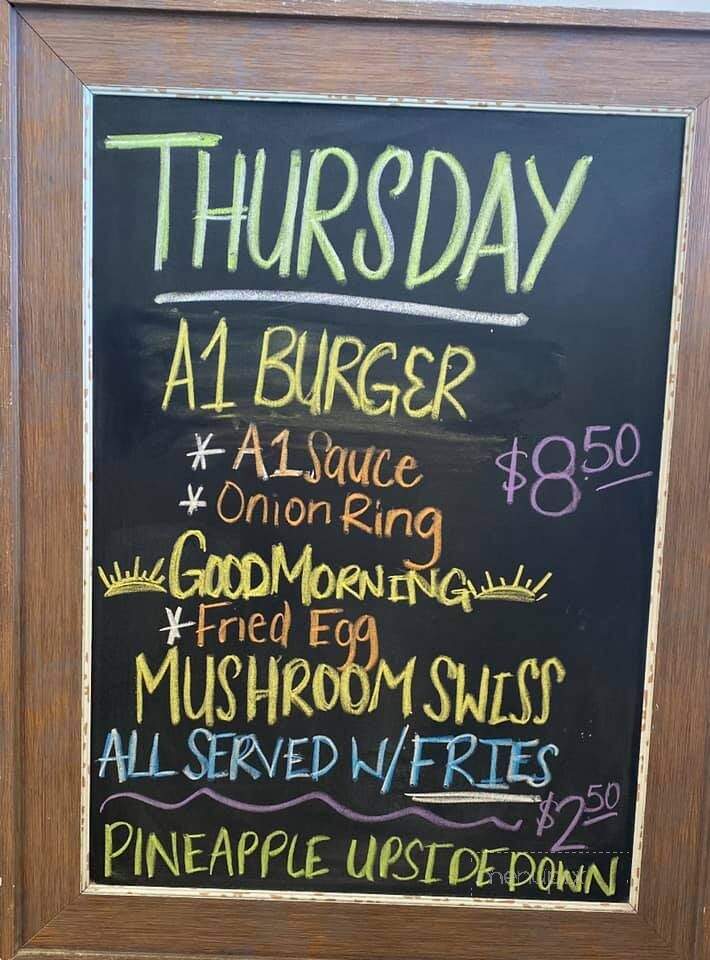 THURSDAY
A1 BURGER
* A1 Sauce
$8.50
* Onion Ring
GOOD MORNING
* Fried Egg
MUSHROOM SWISS
ALL SERVED W/ FRIES
$2.50
PINEAPPLE UPSIDE DOWN